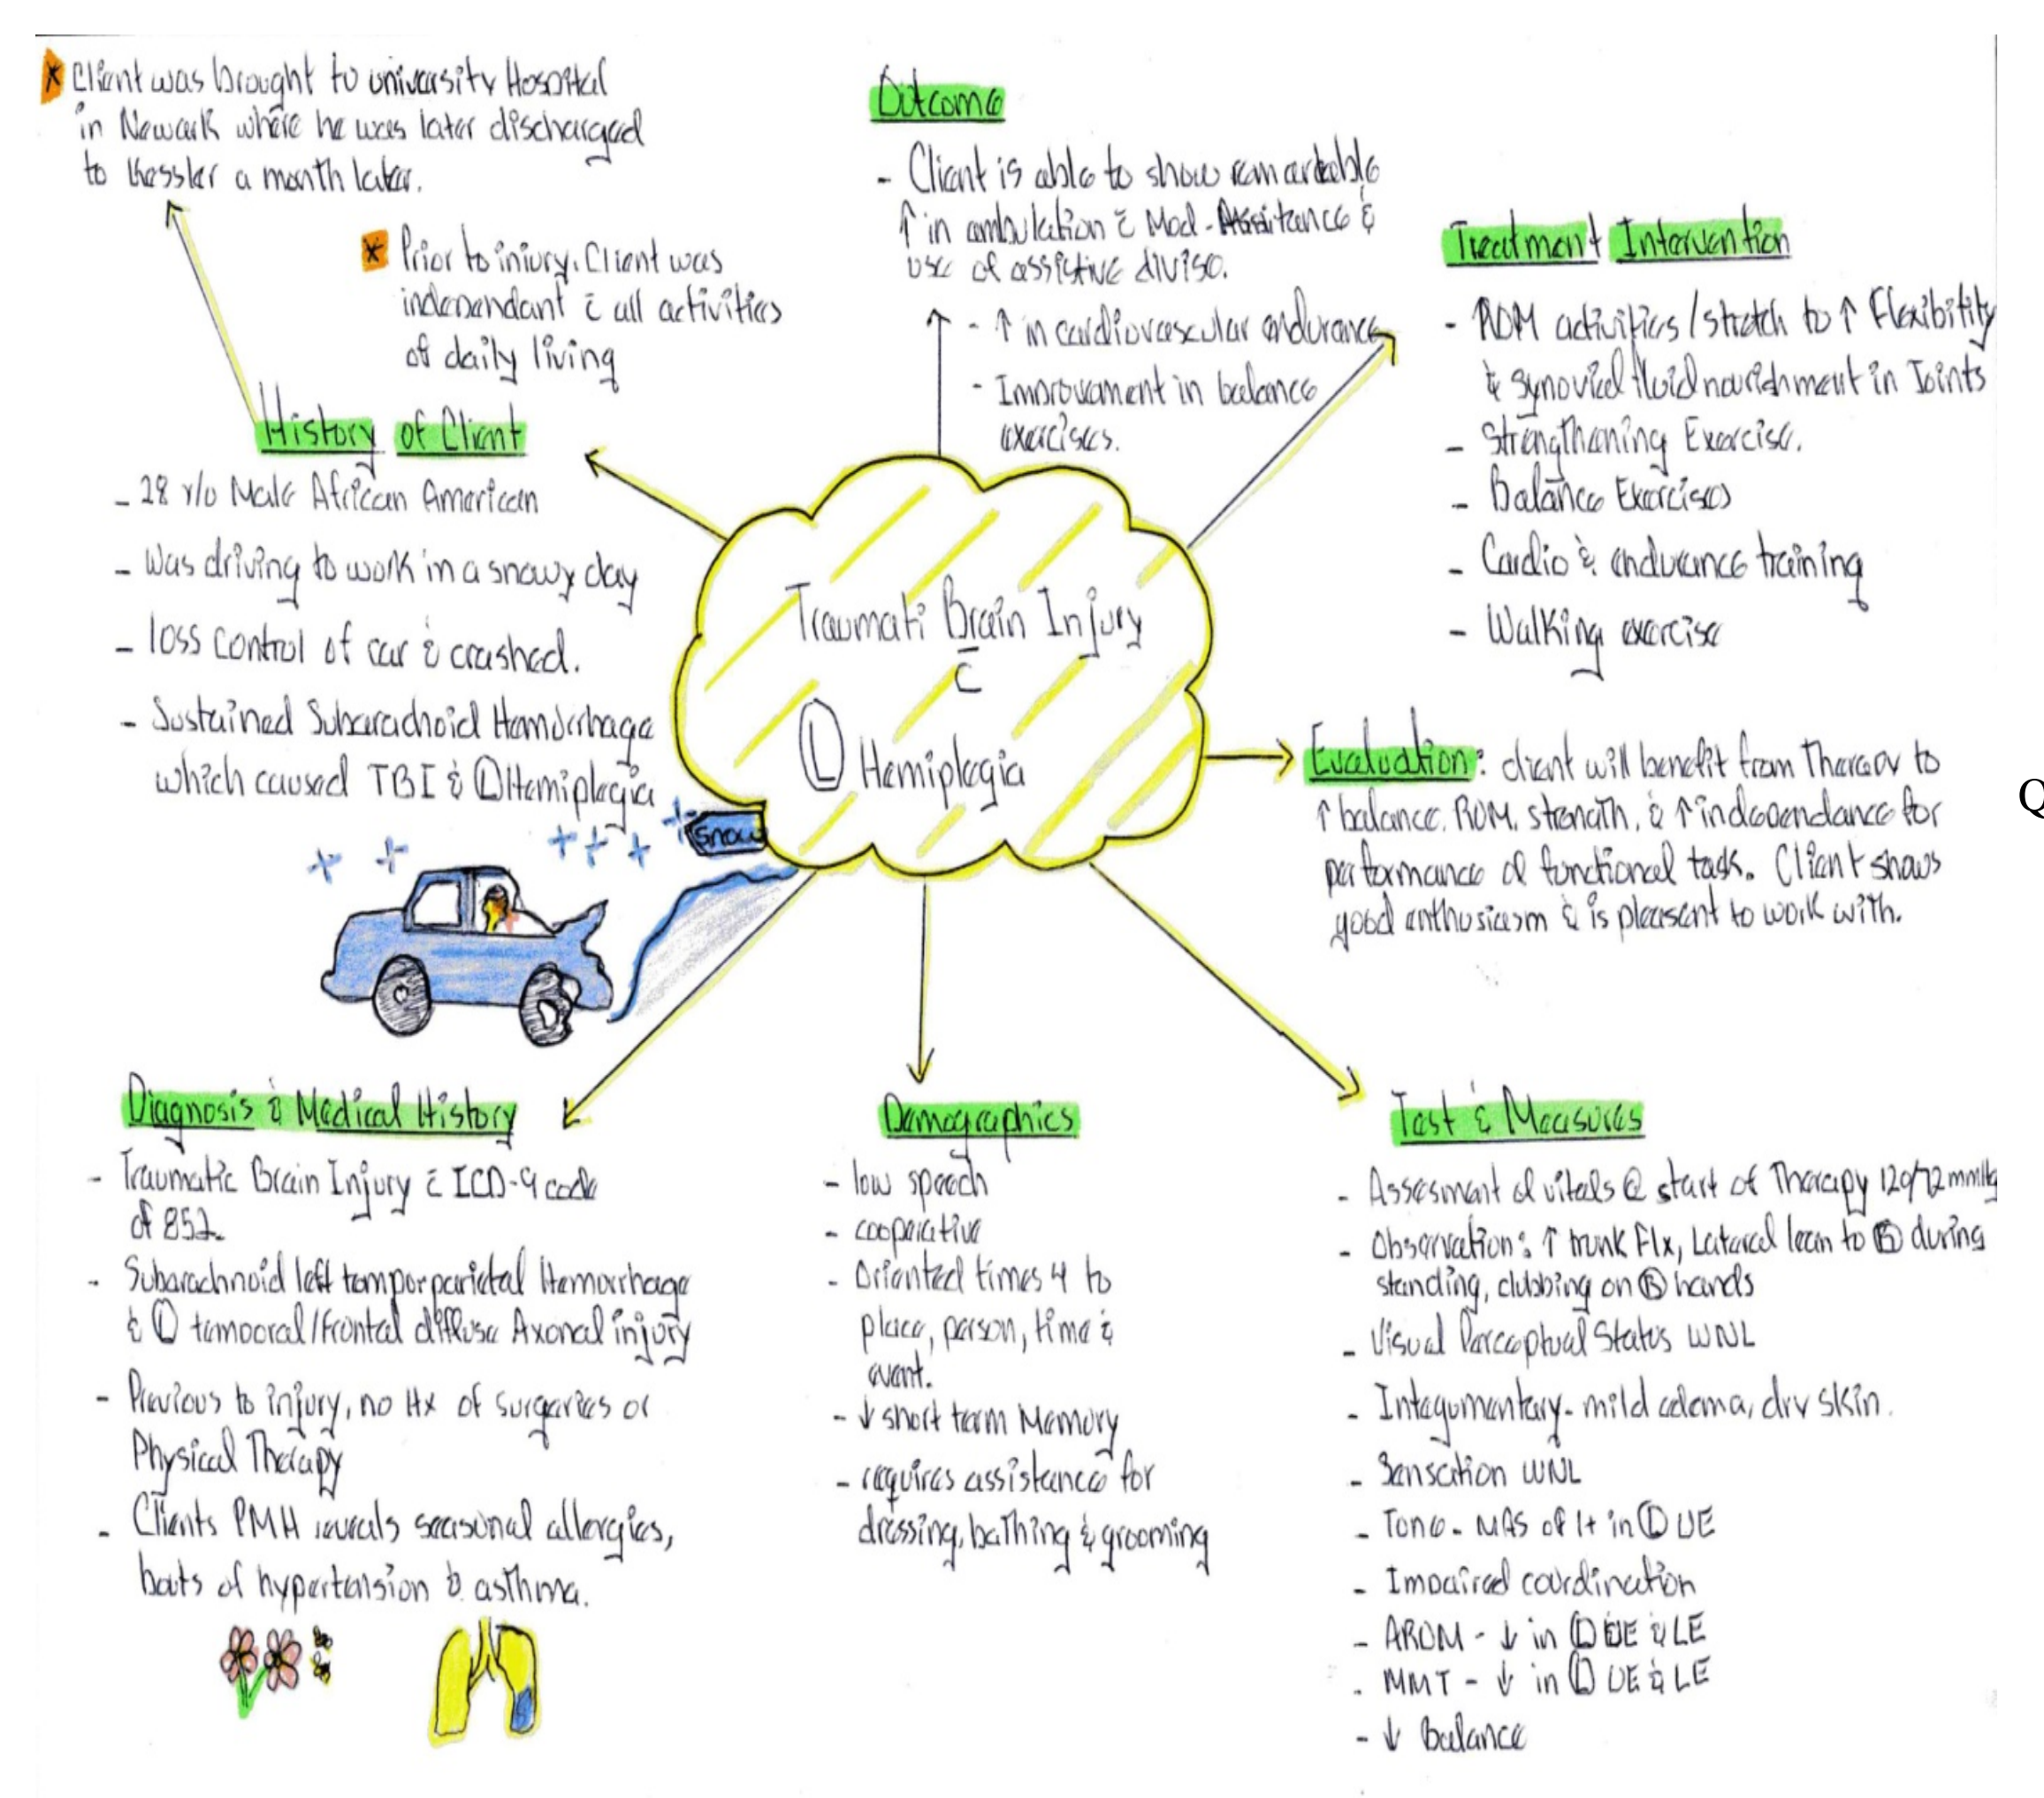 * Client was brought to university Hospital
in Newark where he was later discharged
to Kessler a month later.
* Prior to injury, Client was
independant c̄ all activities
of daily living
History of Client
- 28 y/o Male African American
- Was driving to work in a snowy day
- loss control of car & crashed.
- Sustained Subarachoid Hemorrhage
which caused TBI & Ⓛ Hemiplegia
snow
Outcome
- Client is able to show remarkable
↑ in ambulation c̄ Mod-Assitance &
use of assistive divise.
- ↑ in cardiovascular endurance
- Improvement in balance
exercises.
Treatment Intervention
- ROM activities/stretch to ↑ Flexibility
& synovial fluid nourishment in Joints
- Strengthening Exercise.
- Balance Exercises
- Cardio & endurance training
- Walking exercise
Traumati Brain Injury
c̄
Ⓛ Hemiplegia
Evaluation: client will benefit from Therapy to
↑ balance, ROM, strength, & ↑ independance for
performance of functional task. Client shows
good enthusiasm & is pleasent to work with.
Q
Diagnosis & Medical History
- Traumatic Brain Injury c̄ ICD-9 code
of 852.
- Subarachnoid left temporparietal Hemorrhage
& Ⓛ temporal/frontal diffuse Axonal injury
- Previous to injury, no Hx of surgeries or
Physical Therapy
- Clients PMH reveals seasonal allergies,
bouts of hypertension & asthma.
Demographics
- low speech
- cooperative
- Oriented times 4 to
place, person, time &
event.
- ↓ short term Memory
- requires assistance for
dressing, bathing & grooming
Test & Measures
- Assesment of vitals @ start of Therapy 120/72 mmHg
- Observation: ↑ trunk Flx, Lateral lean to during
standing, clubbing on Ⓑ hands
- Visual Perceptual Status WNL
- Integumentary- mild edema, dry skin.
- Sensation WNL
- Tone- MAS of 1+ in Ⓛ UE
- Impaired coordination
- AROM - ↓ in Ⓛ UE & LE
- MMT - ↓ in Ⓛ UE & LE
- ↓ Balance